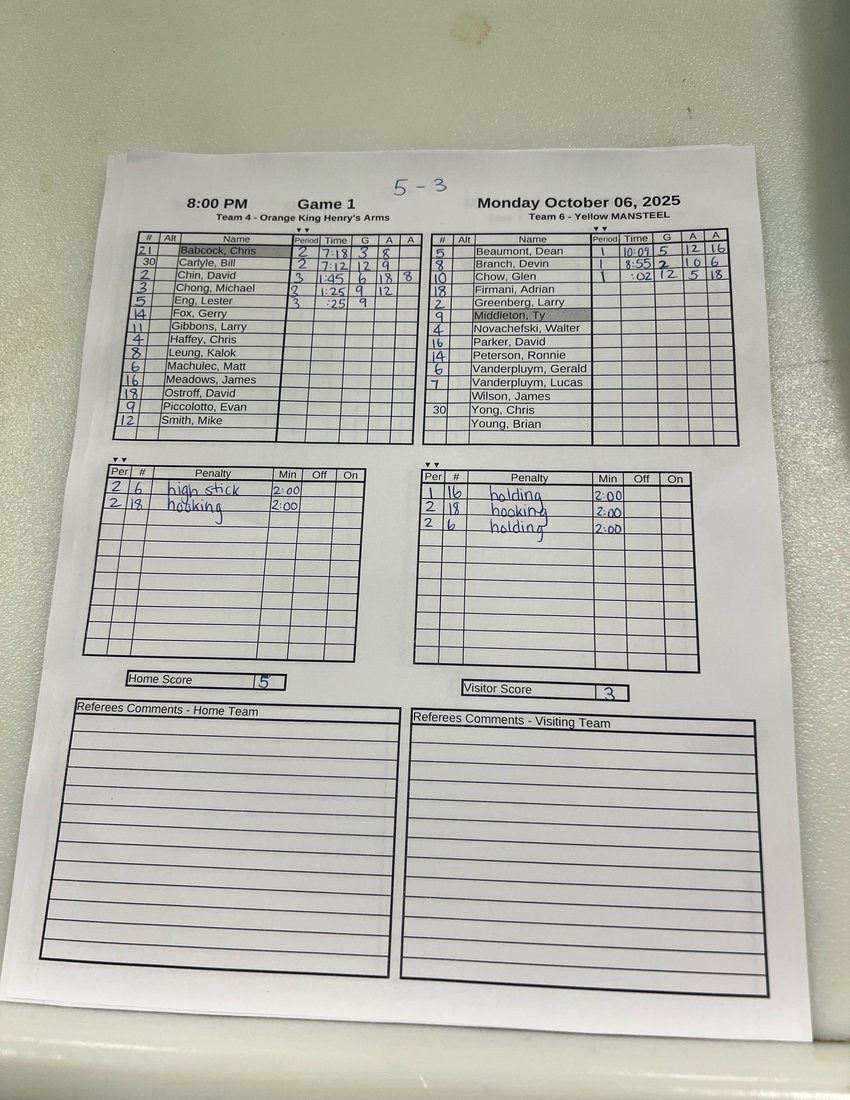 5 - 3
8:00 PM Game 1 Monday October 06, 2025
Team 4 - Orange King Henry's Arms Team 6 - Yellow MANSTEEL
# Alt Name Period Time G A A
21 Babcock, Chris 2 7:18 3 8
30 Carlyle, Bill 2 7:12 12 9
2 Chin, David 3 1:45 6 18 8
3 Chong, Michael 3 1:25 9 12
5 Eng, Lester 3 :25 9
14 Fox, Gerry
11 Gibbons, Larry
4 Haffey, Chris
8 Leung, Kalok
6 Machulec, Matt
16 Meadows, James
18 Ostroff, David
9 Piccolotto, Evan
12 Smith, Mike
# Alt Name Period Time G A A
5 Beaumont, Dean 1 10:09 5 12 16
8 Branch, Devin 1 8:55 2 10 6
10 Chow, Glen 1 :02 12 5 18
18 Firmani, Adrian
2 Greenberg, Larry
9 Middleton, Ty
4 Novachefski, Walter
16 Parker, David
14 Peterson, Ronnie
6 Vanderpluym, Gerald
7 Vanderpluym, Lucas
Wilson, James
30 Yong, Chris
Young, Brian
Per # Penalty Min Off On
2 6 high stick 2:00
2 18 hooking 2:00
Per # Penalty Min Off On
1 16 holding 2:00
2 18 hooking 2:00
2 6 holding 2:00
Home Score 5
Visitor Score 3
Referees Comments - Home Team
Referees Comments - Visiting Team